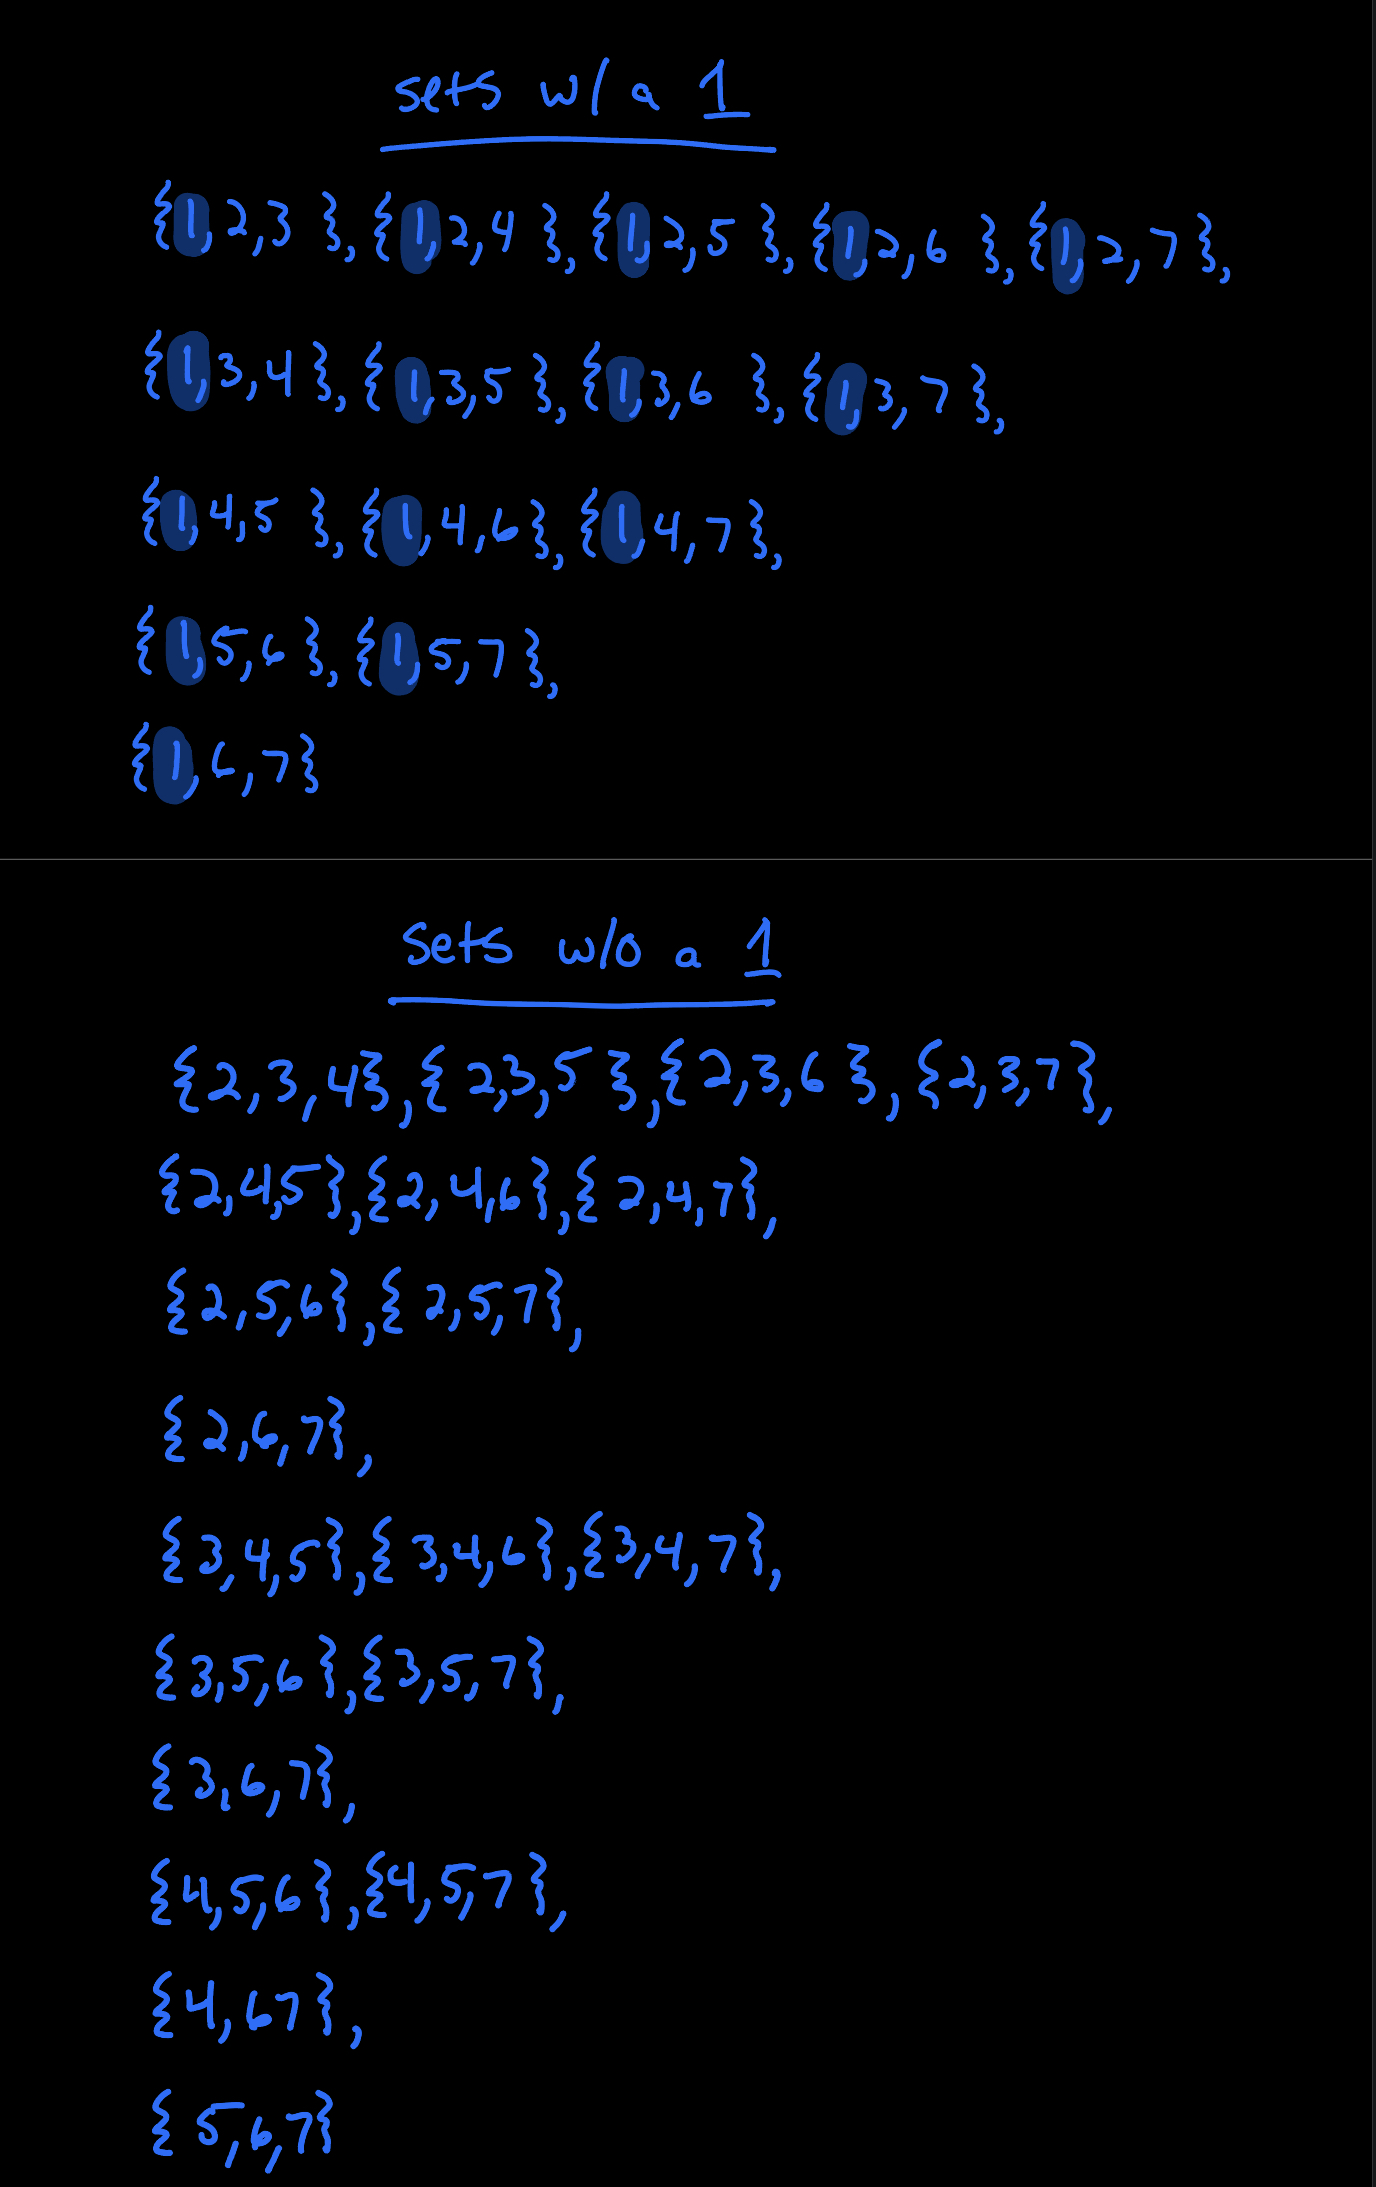 sets w/ a 1
{1,2,3}, {1,2,4}, {1,2,5}, {1,2,6}, {1,2,7},
{1,3,4}, {1,3,5}, {1,3,6}, {1,3,7},
{1,4,5}, {1,4,6}, {1,4,7},
{1,5,6}, {1,5,7},
{1,6,7}
sets w/o a 1
{2,3,4}, {2,3,5}, {2,3,6}, {2,3,7},
{2,4,5}, {2,4,6}, {2,4,7},
{2,5,6}, {2,5,7},
{2,6,7},
{3,4,5}, {3,4,6}, {3,4,7},
{3,5,6}, {3,5,7},
{3,6,7},
{4,5,6}, {4,5,7},
{4,67},
{5,6,7}